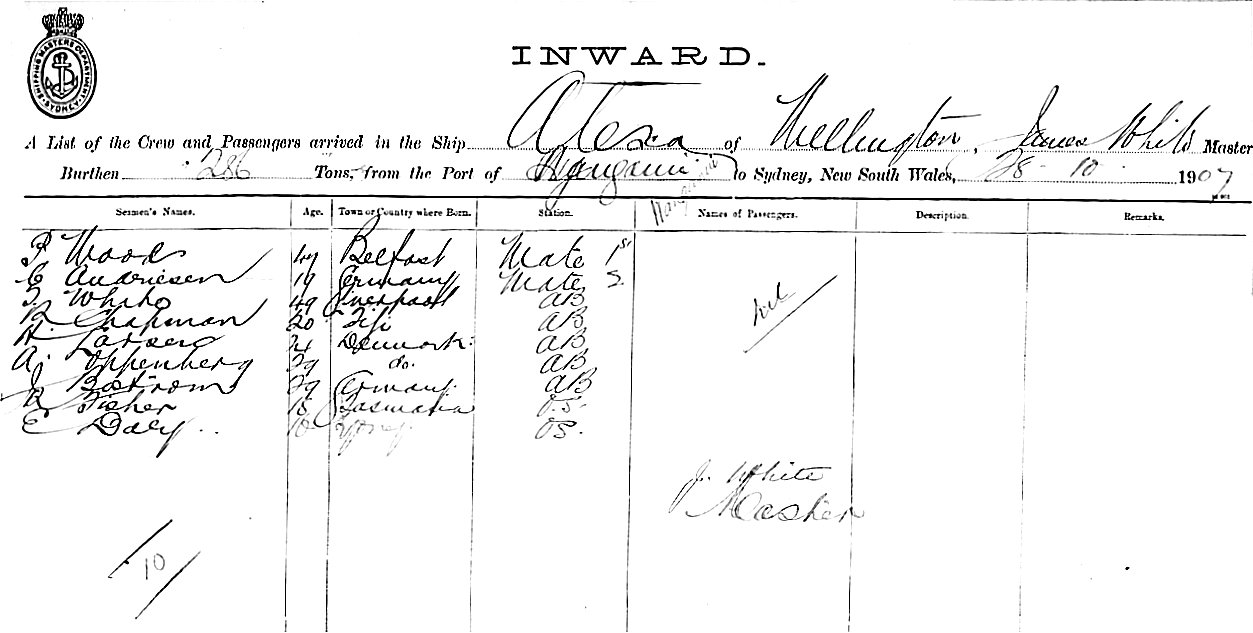 SHIPPING MASTERS DEPARTMENT SYDNEY
INWARD.
A List of the Crew and Passengers arrived in the Ship Alexa of Wellington, James White Master
Burthen 286 Tons, from the Port of Wanganui to Sydney, New South Wales, 28 10 1907
Wanganui
Seamen's Names. Age. Town or Country where Born. Station. Names of Passengers. Description. Remarks.
Wood Belfast Mate 1st
C Andriesen 19 Germany Mate 2
White 49 Liverpool AB
Chapman 20 Fiji AB
H. Larsen 24 Denmark AB
A. Oppenberg 29 do. AB
Bostrom 29 Germany AB
Fisher 18 Tasmania O.S.
E Daly 18 OS.
nil
J. White
Master
10